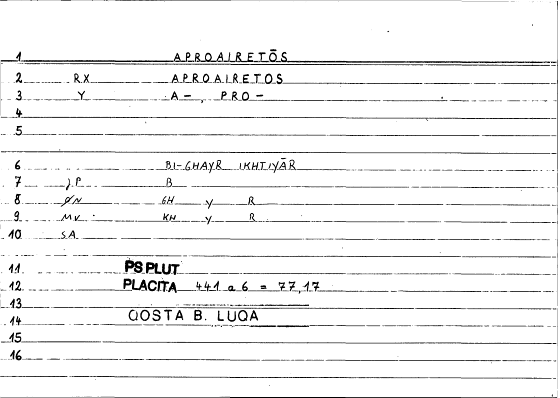 1 APROAIRETŌS
2 RX APROAIRETOS
3 Y A-, PRO-
4
5
6 BI-GHAYR IKHTIYĀR
7 J.P B
8 GH Y R
9 MV KH Y R
10 SA
11 PSPLUT
12 PLACITA 441 a 6 = 77,17
13
14 QOSTA B. LUQA
15
16